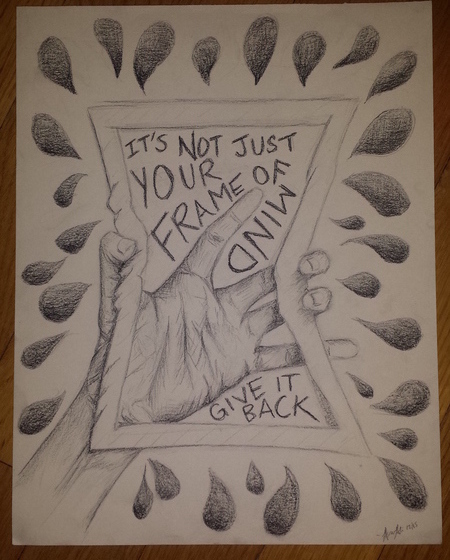 IT'S NOT JUST
YOUR
FRAME OF
MIND
GIVE IT
BACK